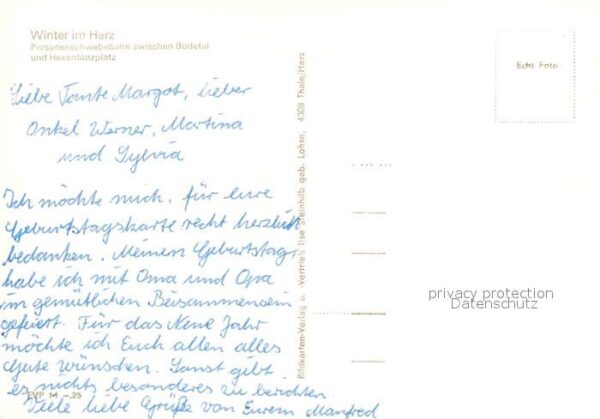 Winter im Harz
Personenschwebebahn zwischen Bodetal
und Hexentanzplatz
Liebe Tante Margot, lieber
Onkel Werner, Martina
und Sylvia
Ich möchte mich, für eure
Geburtstagskarte recht herzlich
bedanken. Meinen Geburtstag,
habe ich mit Oma und Opa
im gemütlichen Beisammensein
gefeiert. Für das Neue Jahr
möchte ich Euch allen alles
Gute wünschen. Sonst gibt
es nichts besonderes zu berichten.
Viele liebe Grüße von Eurem Manfred
EVP M -,25
Bildkarten-Verlag u. -Vertrieb Ilse Steinhilb geb. Lohse, 4308 Thale/Harz
Echt Foto
privacy protection
Datenschutz